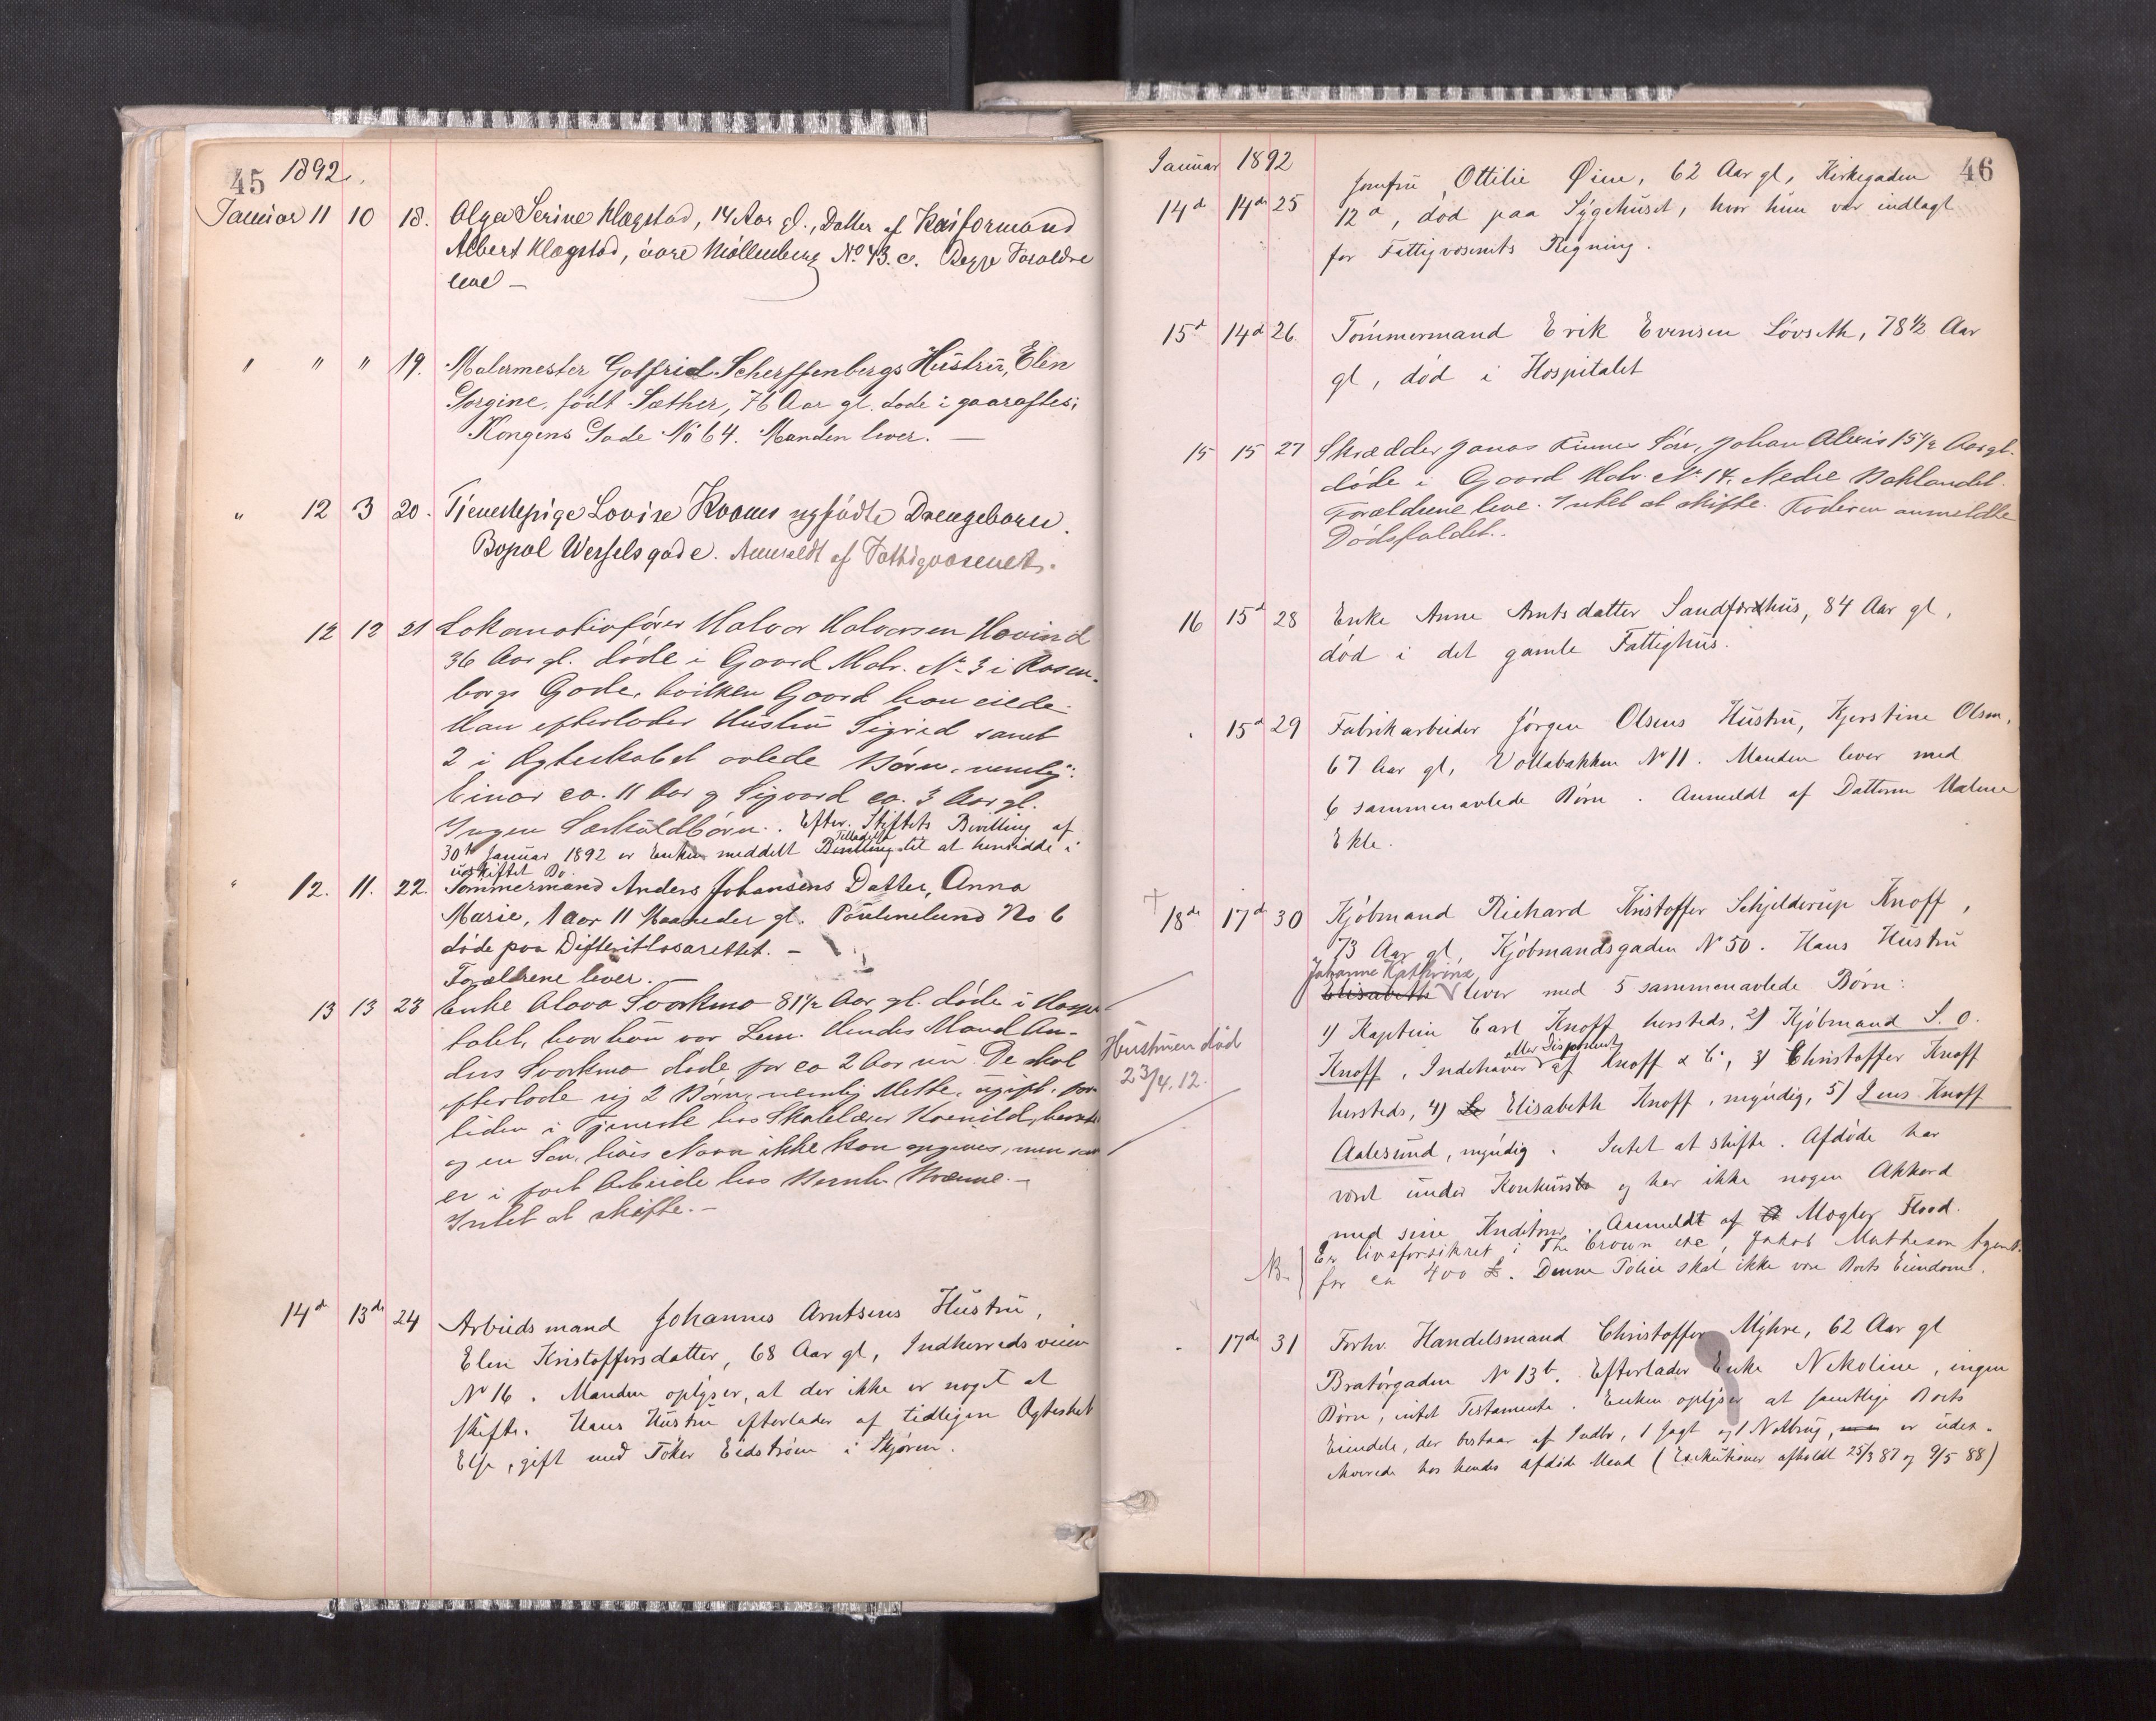 45 1892.
Januar 11 10 18. Olga Serine Klægstad, 14 Aar gl., Datter af Kaiformand
Albert Klægstad, øvre Møllenberg No. 43. c. Begge Forældre
leve —
" " " 19. Malermester Gotfried Scherffenbergs Hustru, Elen
Gorgine, født Sæther, 76 Aar gl. døde i gaaraftes i
Kongens Gade No 64. Manden lever. —
" 12 3 20. Tjenestepige Lovise nyfødte Drengebarn.
Bopæl Wesselsgade. Anmeldt af Fattigvæsenet.
12 12 21 Lokomotivfører Halvor Halvorsen Hovind
36 Aar gl. døde i Gaard Matr. Nr. 3 i Rosen-
borgs Gade, hvilken Gaard han eiede.
Han efterlader Hustru Sigrid samt
2 i Ægteskabet avlede Børn, nemlig:
Einar ca. 11 Aar og Sigvard ca. 3 Aar gl.
Ingen Særkuldbørn. Efter Stiftets Bevilling af
30te Januar 1892 er Enken meddelt Bevilling Tilladelse til at hensidde i
uskiftet Bo.
" 12. 11. 22. Tømmermand Anders Johansens Datter, Anna
Marie, 1 aar 11 Maaneder gl. Paulinelund No 6
døde paa Difteritlasarettet. —
Forældrene lever. —
13 13 23 Enke Olava Svorkmo 81½ Aar gl. døde i Hospi
talet, hvor hun var Lem. Hendes Mand An-
ders Svorkmo døde for ca 2 Aar siden. De skal
efterlade sig 2 Børn, nemlig Mette, ugift, for
tiden i Tjeneste hos Skolelærer
og en Søn, hvis Navn ikke kan opgives, men som
er i fast Arbeide hos
Intet at skifte. —
14de 13de 24 Arbeidsmand Johannes Arntsens Hustru,
Elen Kristoffersdatter, 68 Aar gl, Indherredsveien
No 16. Manden oplyser, at der ikke er noget at
skifte. Hans Hustru efterlader af tidligere Ægteskab
Else, gift med Eidstrøm i Skjøren.
Januar 1892 46
14de 14de 25 Jomfru Ottilie Øien, 62 Aar gl, Kirkegaden
12 a, død paa Sygehuset, hvor hun var indlagt
for Fattigvæsenets Regning.
15de 14de 26 Tømmermand Erik Evensen Løvseth, 78½ Aar
gl, død i Hospitalet
15 15 27 Skrædder Jonas Søn, Johan Alexis 15½ Aar gl.
døde i Gaard Matr. Nr 14, Nedre Baklandet.
Forældrene leve. Intet at skifte. Faderen anmeldte
Dødsfaldet.
16 15d 28 Enke Anne Arntsdatter Sandfærdhus, 84 Aar gl,
død i det gamle Fattighus.
" 15d 29 Fabrikarbeider Jørgen Olsens Hustru, Kjerstine Olsen,
67 Aar gl, Vollabakken No 11. Manden lever med
6 sammenavlede Børn. Anmeldt af Datteren Malene
Ekle.
+ 18de 17d 30 Kjøbmand Richard Kristoffer Schjelderup Knoff,
73 Aar gl, Kjøbmandsgaden No 50. Hans Hustru
Johanne Kathrine
Elisabeth lever med 5 sammenavlede Børn:
1) Kaptein Carl Knoff hersteds, 2) Kjøbmand S. O.
eller Disponent
Knoff, Indehaver af Knoff & Co, 3) Christoffer Knoff
hersteds, 4) Elisabeth Knoff, myndig, 5) Jens Knoff
Aalesund, myndig. Intet at skifte. Afdøde har
været under Konkurs og har ikke nogen Akkord
med sine Kreditorer. Anmeldt af Mægler Flood.
NB. Er livsforsikret i The Crown etc, Jakob Matheson Agent
for ca 400 £. Denne Police skal ikke være Boets Eiendom.
Hustruen død
23/4.12.
" 17de 31 Forhv. Handelsmand Christoffer Myhre, 62 Aar gl
Bratørgaden No 13 b. Efterlader Enke Nekoline, ingen
Børn, intet Testamente. Enken oplyser at samtlige Boets
Eiendele, der bestaar af Indbo, 1 Jagt og 1 Notbrug, er udex-
ekverede hos hendes afdøde Mand (Exekutioner afholdt 25/3 87 og 9/5 88)